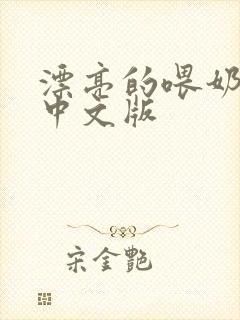 漂亮的喂奶
中文版
宋金艷